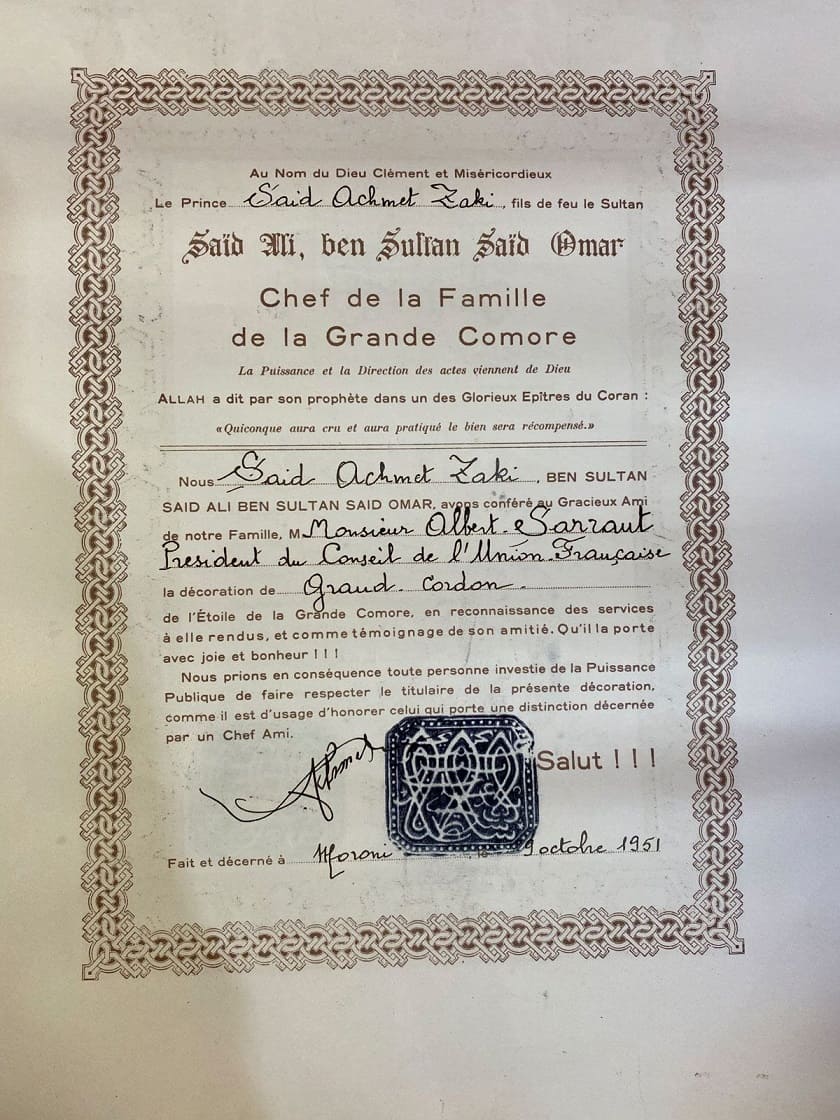 Au Nom du Dieu Clément et Miséricordieux
Le Prince Said Achmet Zaki, fils de feu le Sultan
Saïd Ali, ben Sultan Saïd Omar
Chef de la Famille
de la Grande Comore
La Puissance et la Direction des actes viennent de Dieu
ALLAH a dit par son prophète dans un des Glorieux Epîtres du Coran :
«Quiconque aura cru et aura pratiqué le bien sera récompensé.»
Nous Said Achmet Zaki, BEN SULTAN
SAID ALI BEN SULTAN SAID OMAR, avons conféré au Gracieux Ami
de notre Famille, M. Monsieur Albert Sarraut
President du Conseil de l'Union Française
la décoration de Grand Cordon
de l'Étoile de la Grande Comore, en reconnaissance des services
à elle rendus, et comme témoignage de son amitié. Qu'il la porte
avec joie et bonheur ! ! !
Nous prions en conséquence toute personne investie de la Puissance
Publique de faire respecter le titulaire de la présente décoration,
comme il est d'usage d'honorer celui qui porte une distinction décernée
par un Chef Ami.
Salut ! ! !
Fait et décerné à Moroni, le 9 octobre 1951